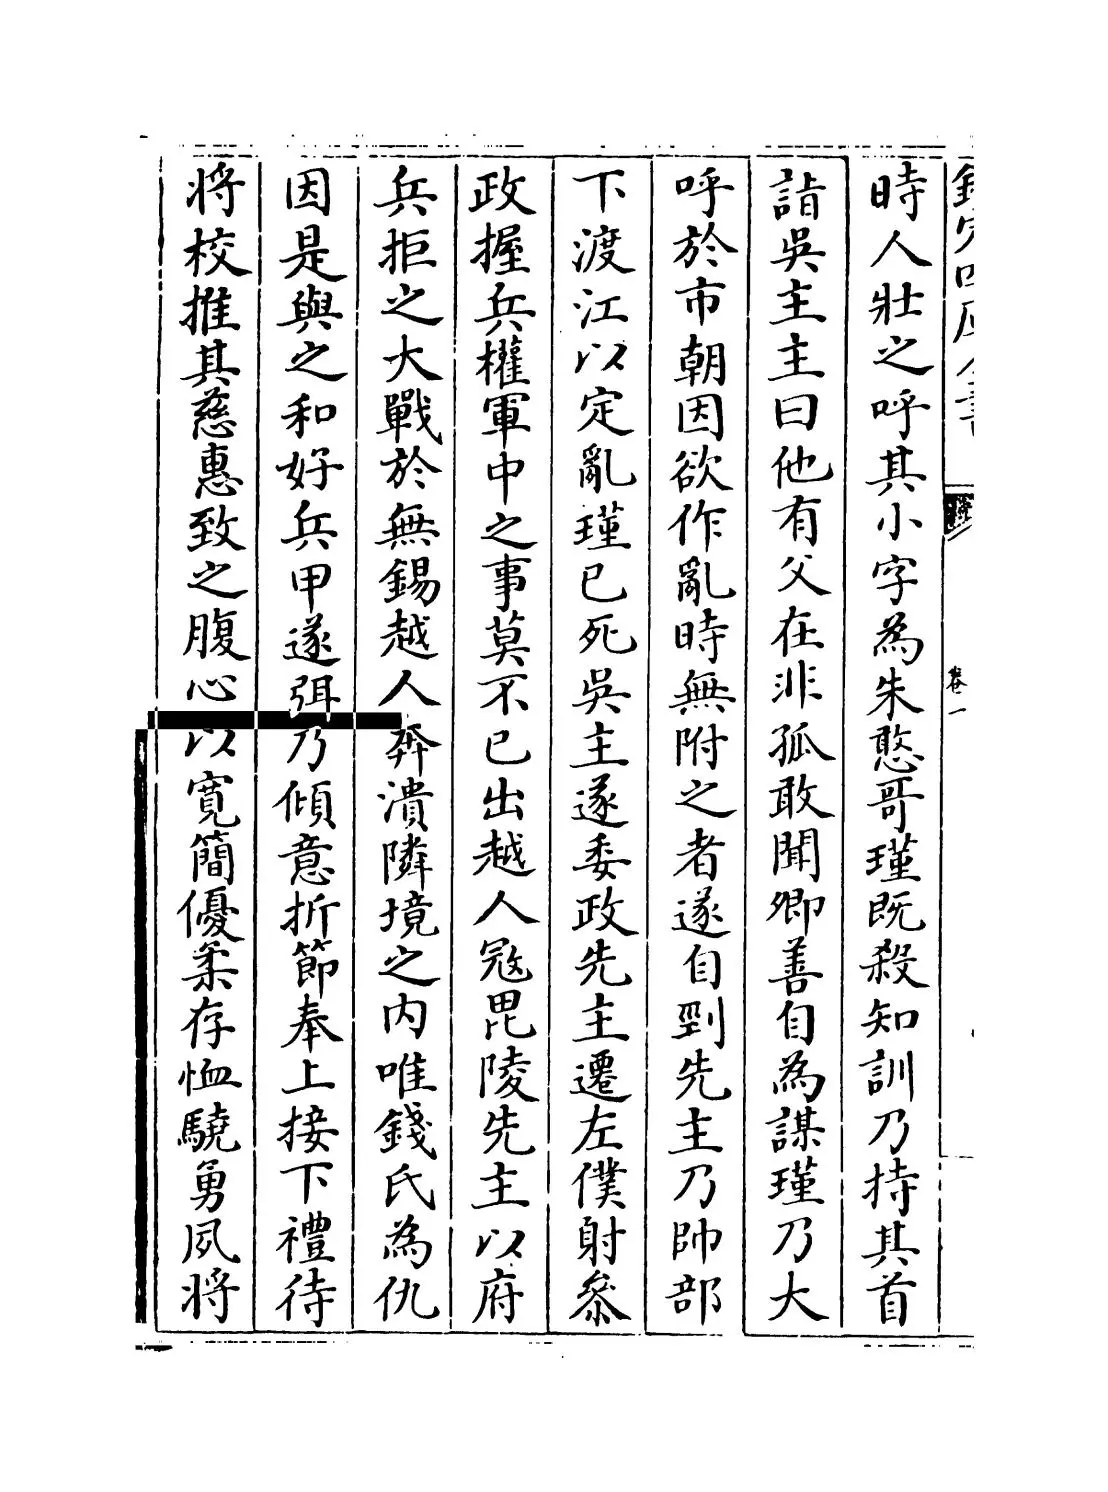 欽定四庫全書
卷一
時人壯之呼其小字為朱憨哥瑾既殺知訓乃持其首
詣吳主主曰他有父在非孤敢聞卿善自為謀瑾乃大
呼於市朝因欲作亂時無附之者遂自剄先主乃帥部
下渡江以定亂瑾已死吳主遂委政先主遷左僕射叅
政握兵權軍中之事莫不已出越人冦毘陵先主以府
兵拒之大戰於無錫越人奔潰隣境之内唯錢氏為仇
因是與之和好兵甲遂弭乃傾意折節奉上接下禮待
将校推其慈惠致之腹心以寛簡優柔存恤驍勇夙将